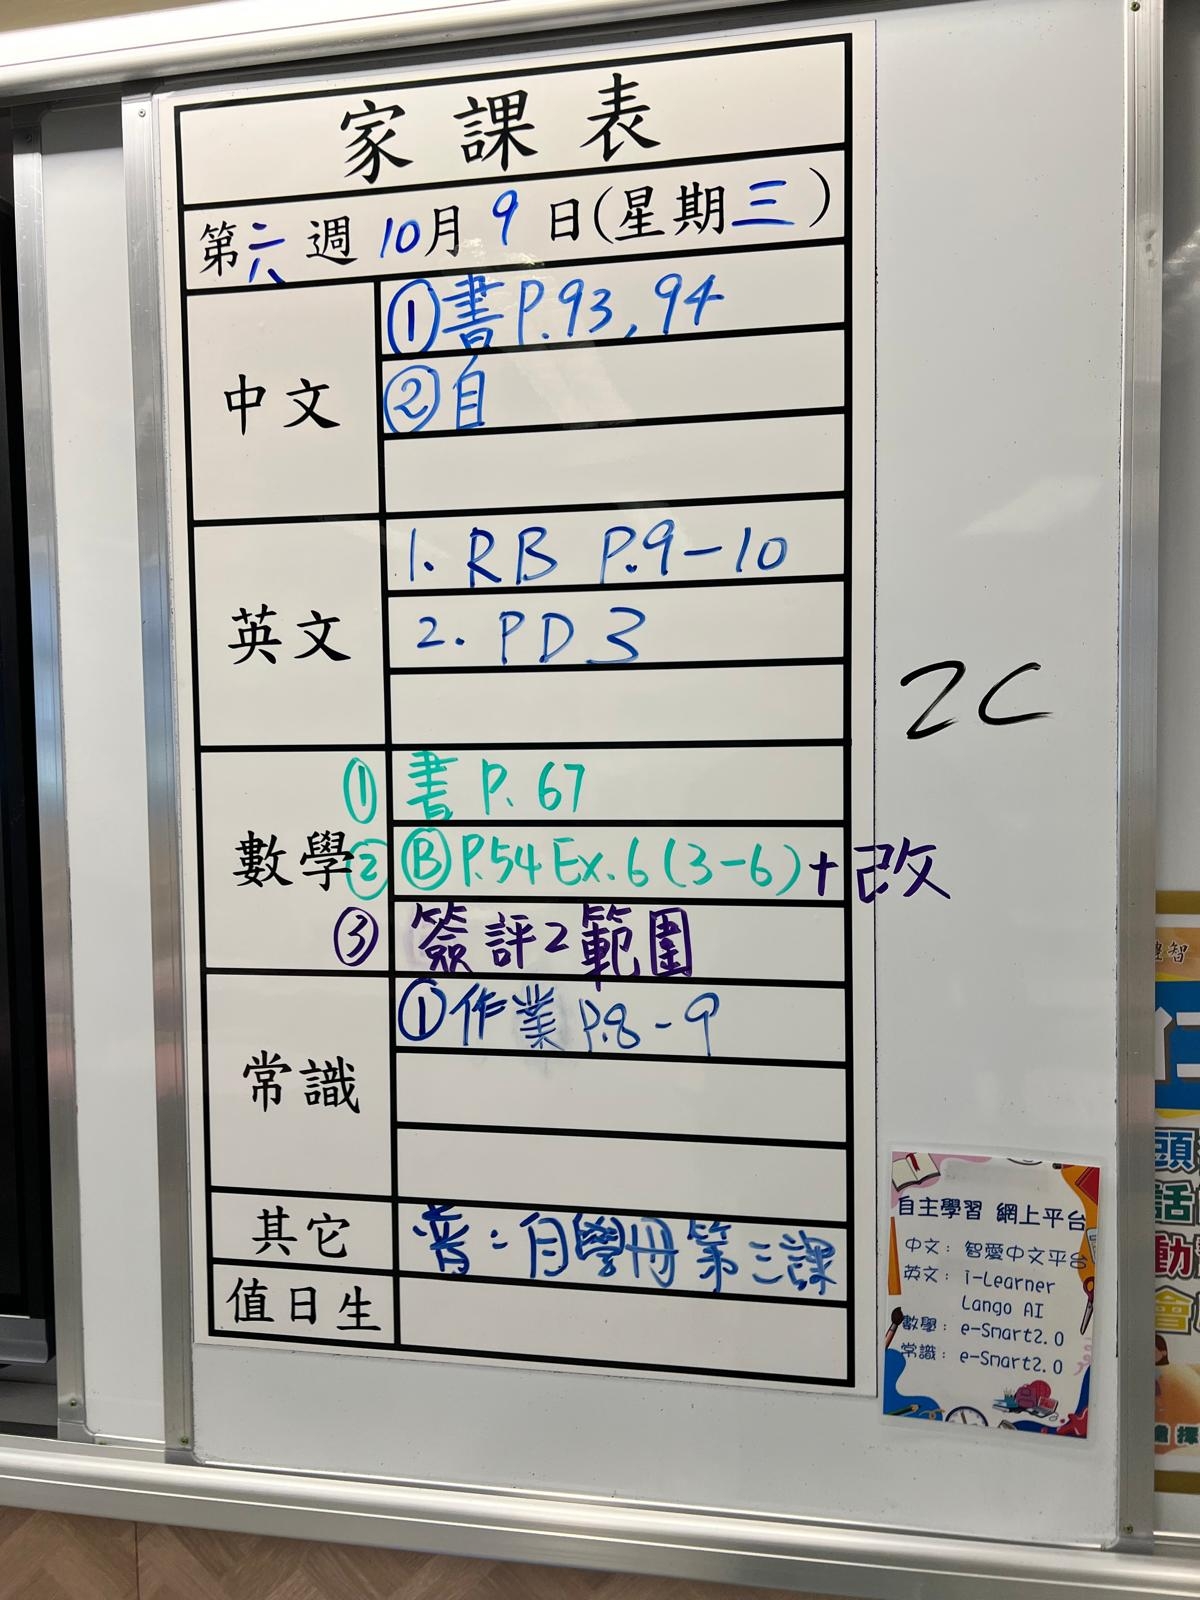 家課表
第六週 10月9日(星期三)
中文
①書P.93,94
②自
英文
1. RB P.9-10
2. PD3
數學
① 書 P.67
② Ⓑ P.54 Ex.6 (3-6)+改
③ 簽評2範圍
常識
①作業 P.8-9
其它
普:自學冊第三課
值日生
2C
自主學習 網上平台
中文:智愛中文平台
英文:i-Learner
Lango AI
數學:e-Smart2.0
常識:e-Smart2.0
智
頭
話
動
會